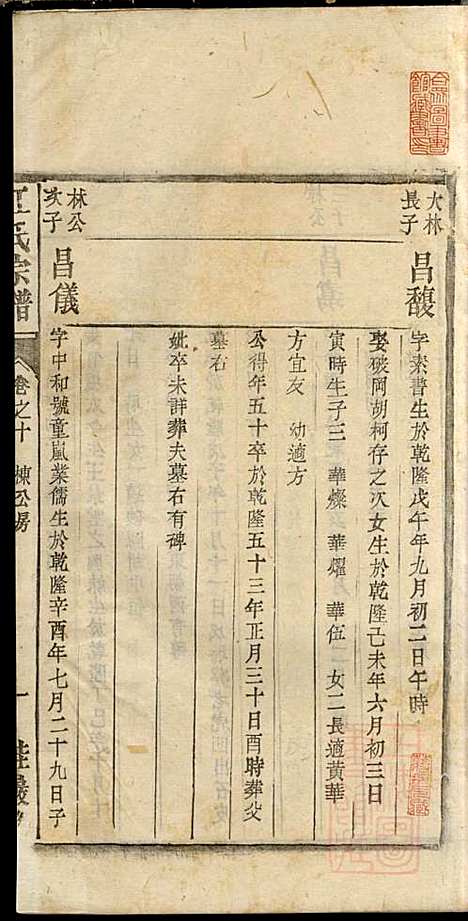 大林
長子
昌馥
字素書生於乾隆戊午年九月初二日午時
娶破岡胡柯存之次女生於乾隆己未年六月初三日
寅時生子三 華燦 華燿 華伍 女二長適黃華
方宜友 幼適方
公得年五十卒於乾隆五十三年正月三十日酉時葬父
墓右
妣卒未詳葬夫墓右有碑
林公
次子
昌儀
字中和號童嵐業儒生於乾隆辛酉年七月二十九日子
氏宗譜
卷之十 棟公房
一